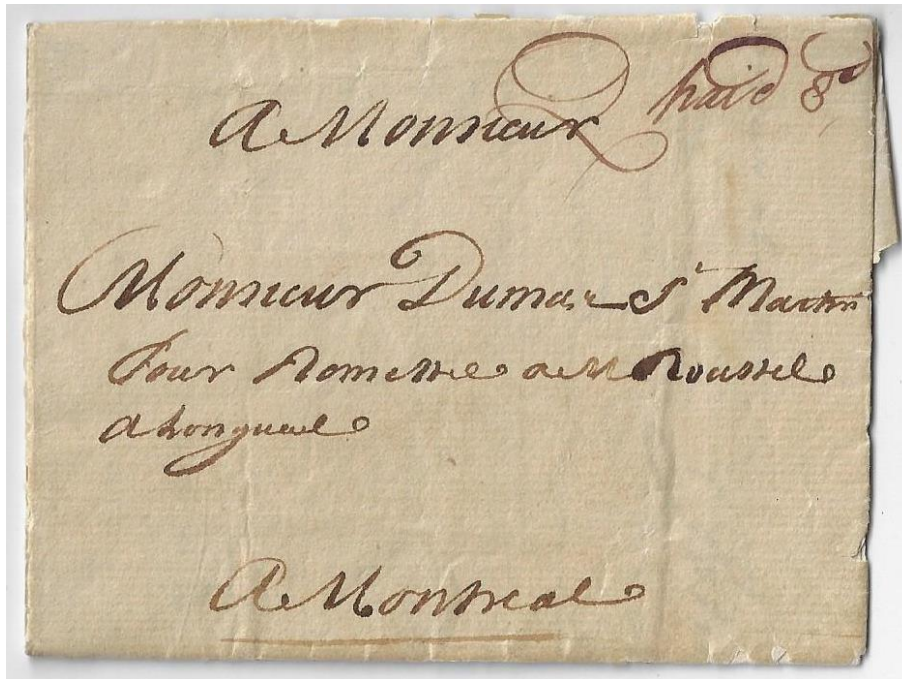 A Monsieur paid 8d
Monsieur Dumas St Martin
Pour Remettre a M Roussel
a Longueuil
A Montreal